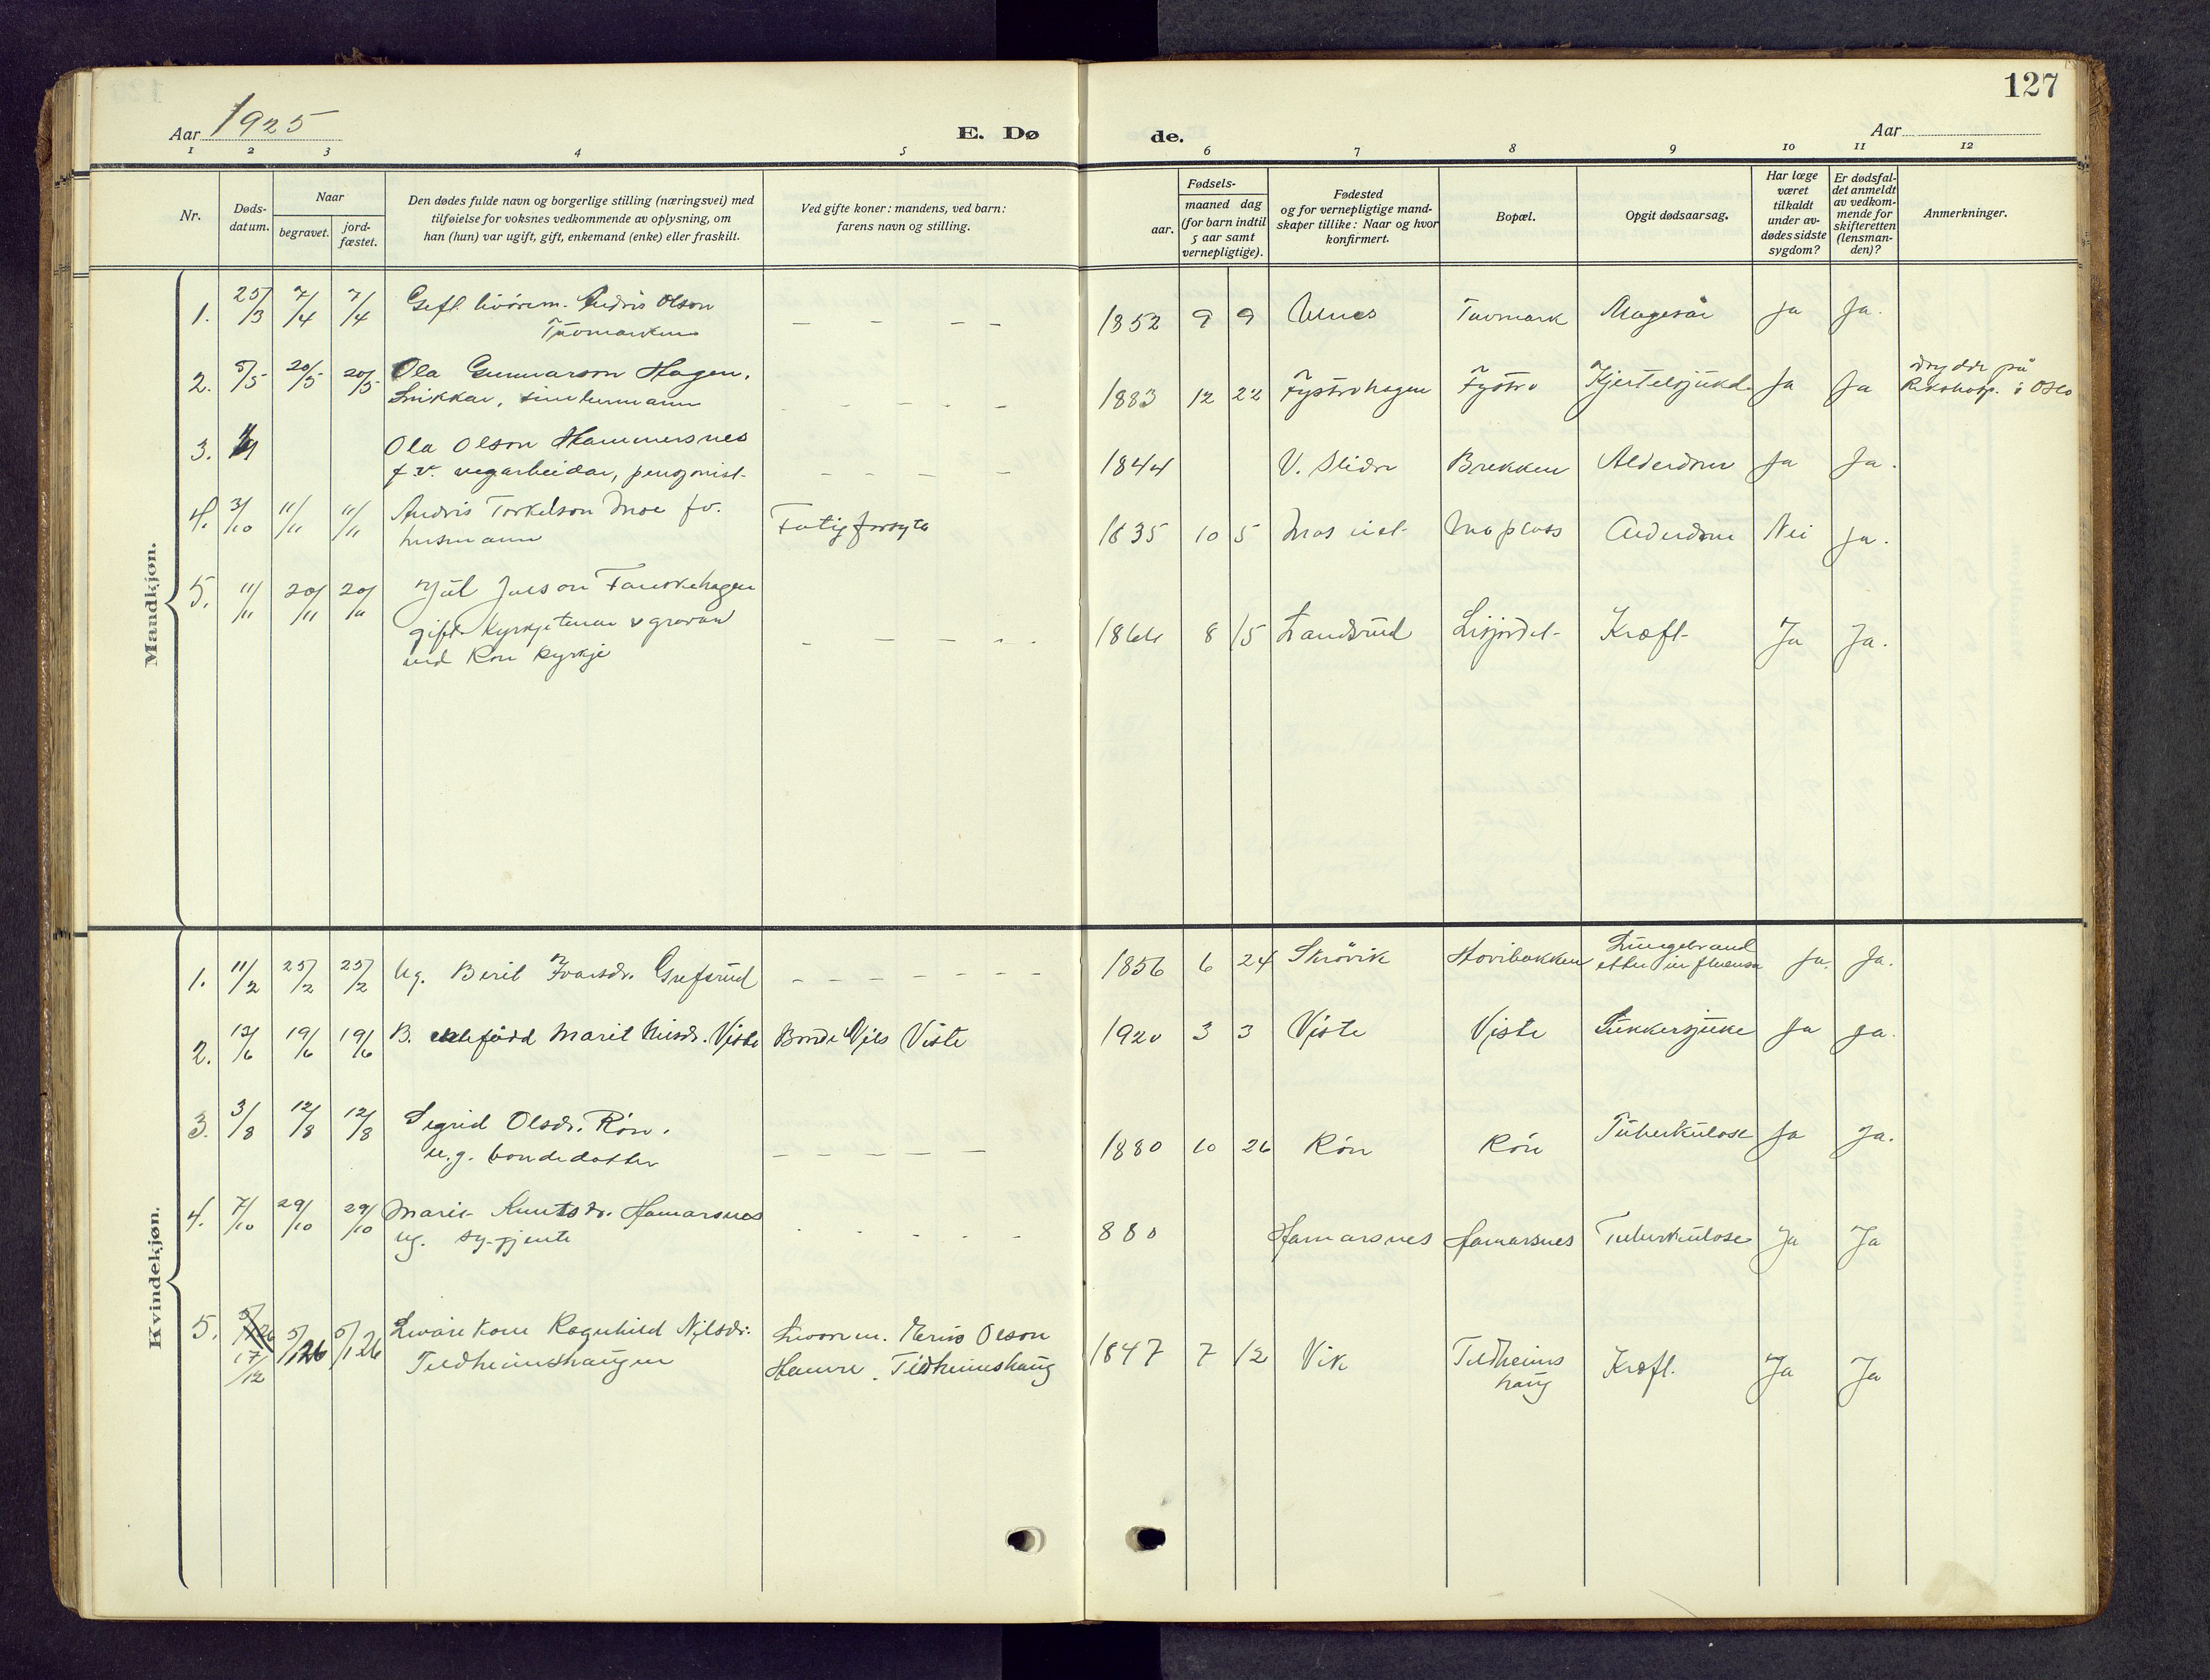 127
Aar 1925
E. Dø
de.
Aar
1 2 3 4 5 6 7 8 9 10 11 12
Nr.
Døds-
datum.
Naar
begravet.
jord-
fæstet.
Den dødes fulde navn og borgerlige stilling (næringsvei) med
tilføielse for voksnes vedkommende av oplysning, om
han (hun) var ugift, gift, enkemand (enke) eller fraskilt.
Ved gifte koner: mandens, ved barn:
farens navn og stilling.
Fødsels-
aar.
maaned dag
(for barn indtil
5 aar samt
vernepligtige).
Fødested
og for vernepligtige mand-
skaper tillike: Naar og hvor
konfirmert.
Bopæl.
Opgit dødsaarsag.
Har læge
været
tilkaldt
under av-
dødes sidste
sygdom?
Er dødsfal-
det anmeldt
av vedkom-
mende for
skifteretten
(lensman-
den)?
Anmerkninger.
Mandkjøn.
1. 25/3 7/4 7/4 Gift Andris Olson
— — — — 1852 9 9 Tuvmark Magesår Ja Ja.
2. 5/5 20/5 20/5 Ola Gunnarson Hagen.
Snikkar, timbermann — — — — — 1883 12 22 Fystrohagen Fystro Kjertelsjukd. Ja Ja
på
Rikshosp. i Oslo
3. Ola Olson Hammersnes
f.v. vegarbeidar, pensjonist. — — — — 1844 V. Slidre Brekken Alderdom Ja Ja.
4. 3/10 11/11 11/11 Andris Torkelson Moe fv.
husmann Fatigforsyta 1835 10 5 Moplass Alderdom Nei Ja.
5. 11/11 20/11 20/11 Jul Julson Fauskehagen
gift Kyrkjetenar & gravar
ved Røn Kyrkje — — — — 1866 8 15 Landsrud Kræft Ja Ja.
Kvindekjøn.
1. 11/2 25/2 25/2 Ug. Berit Ivarsdr. Grefsrud — — — — — — — 1856 6 24 Skrøvik Hovibakken Lungebrand
etter influensa Ja. Ja.
2. 13/6 19/6 19/6 B. ektefødd Marit Nilsdr. Viste Bonde Nils Viste 1920 3 3 Viste Viste Sukkersjuke Ja Ja.
3. 3/8 12/8 12/8 Sigrid Olsdr. Røn.
u.g. bondedotter — — — — — 1880 10 26 Røn Røn Tuberkulose Ja Ja.
4. 7/10 29/10 29/10 Marit Knutsdr. Hamarsnes
ug. sy-gjente 880 Hamarsnes Hamarsnes Tuberkulose Ja Ja
5. 17/12 5/1 26 5/1 26 Ragnhild Nilsdr.
Tildheimshaugen Olson
Hamre. Tildheimshaug 1847 7 12 Vik Tildheims
haug Kræft. Ja Ja